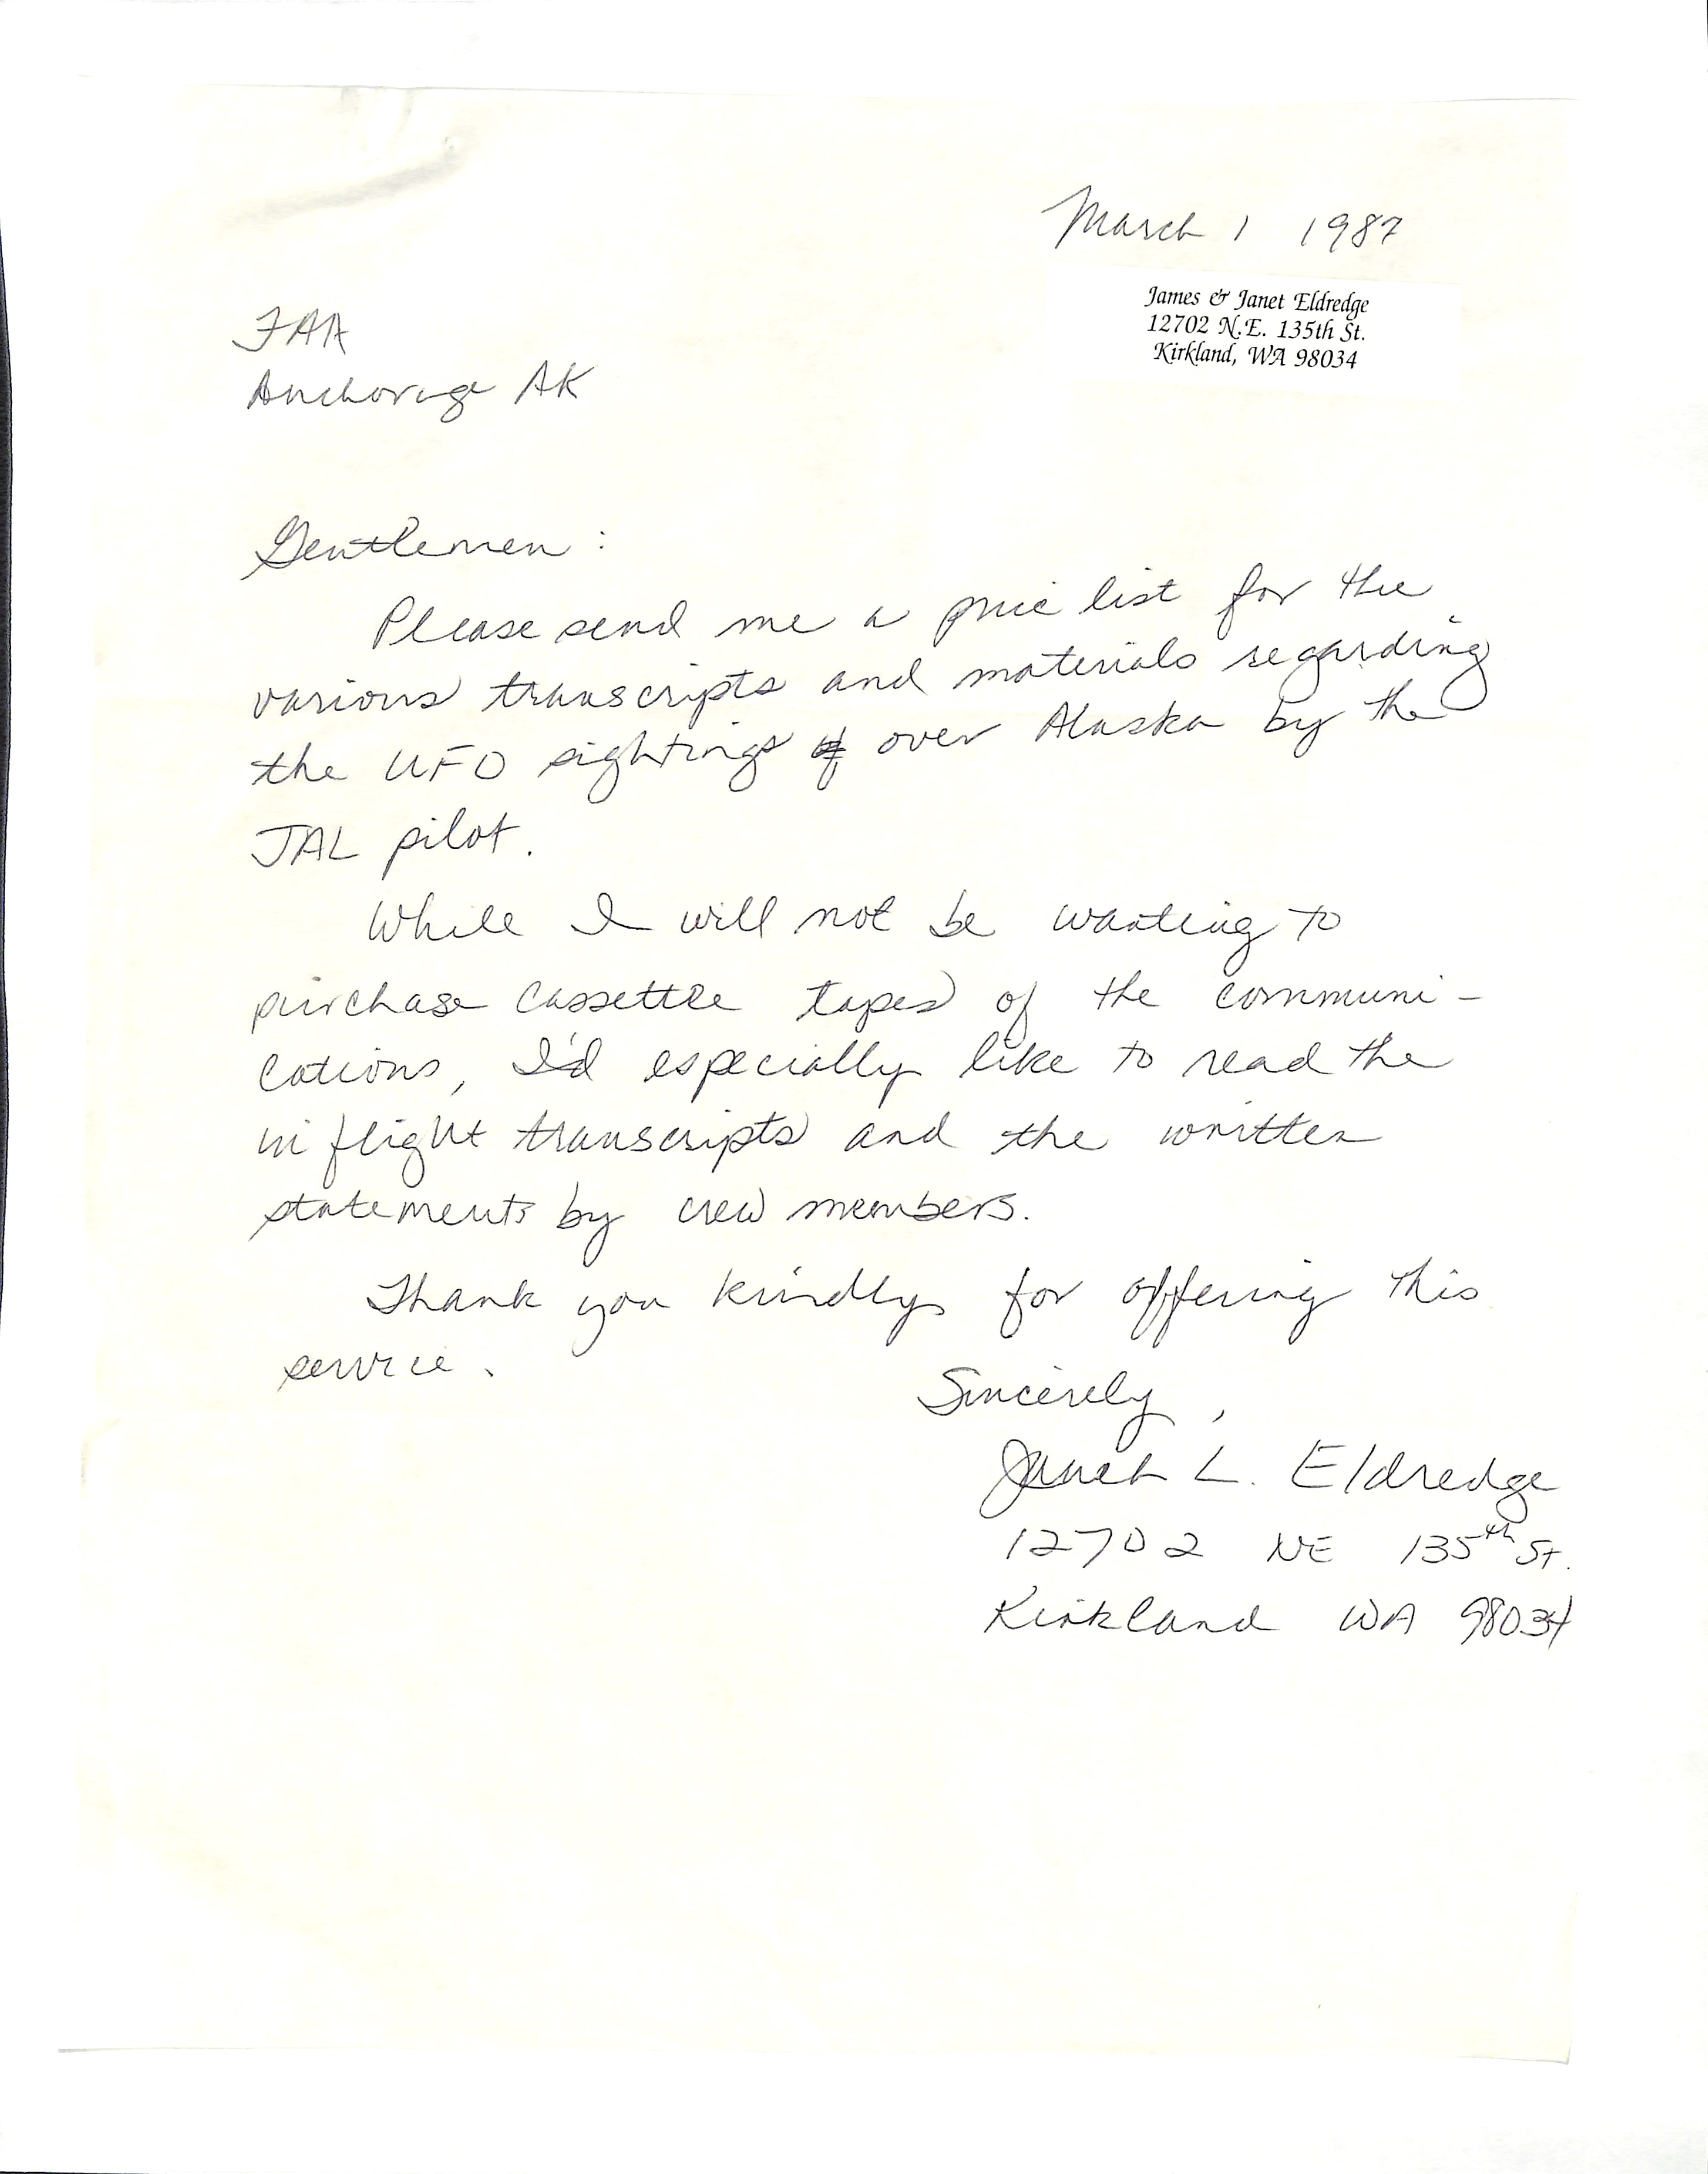 March 1 1987
James & Janet Eldredge
12702 N.E. 135th St.
Kirkland, WA 98034
FAA
Anchorage AK
Gentlemen :
Please send me a price list for the
various transcripts and materials regarding
the UFO sightings of over Alaska by the
JAL pilot.
While I will not be wanting to
purchase cassette tapes of the communi-
cations, I'd especially like to read the
in flight transcripts and the written
statements by crew members.
Thank you kindly for offering this
service.
Sincerely,
Janet L. Eldredge
12702 NE 135th St.
Kirkland WA 98034